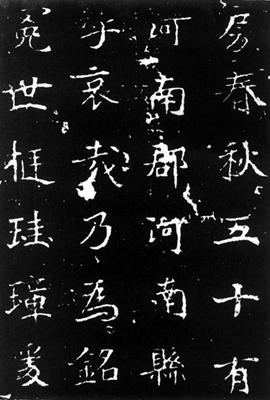 房春秋五十有
河南郡河南縣
乎哀哉乃為銘
世挺珪璋爰